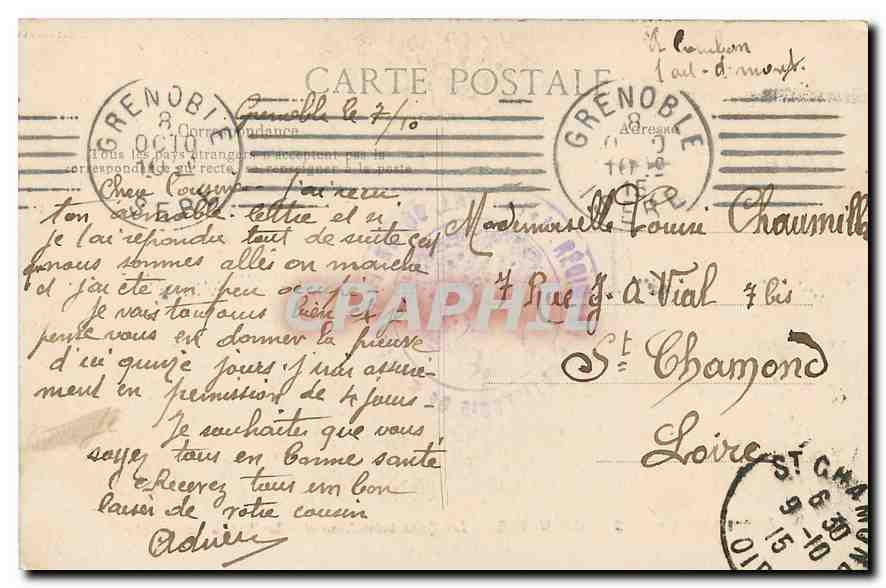 CARTE POSTALE
Correspondance
Tous les pays étrangers n'acceptent pas la
correspondance au recto, se renseigner à la poste
Adresse
GRENOBLE
8
OCT 10
15
ISÈRE
GRENOBLE
8
15
ISÈRE
Grenoble le 7/10
Cher Cousine J'ai recu
ton aimable lettre et si
je t'ai repondu tout de suite c'est
que nous sommes allés en marche
et j'ai été un peu occupé
Je vais toujours bien et je
pense vous en donner la preuve
d'ici quinze jours. j'irai assuré-
ment en permission de 4 jours -
Je souhaite que vous
soyez tous en bonne santé
Recevez tous un bon
baiser de votre cousin
Adrien
Mademoiselle Louise Chaumille
7 Rue J. A Vial 7 bis
St Chamond
Loire
CPAPHIL
ST CHAMOND
6 30
9 - 10
15
LOIRE